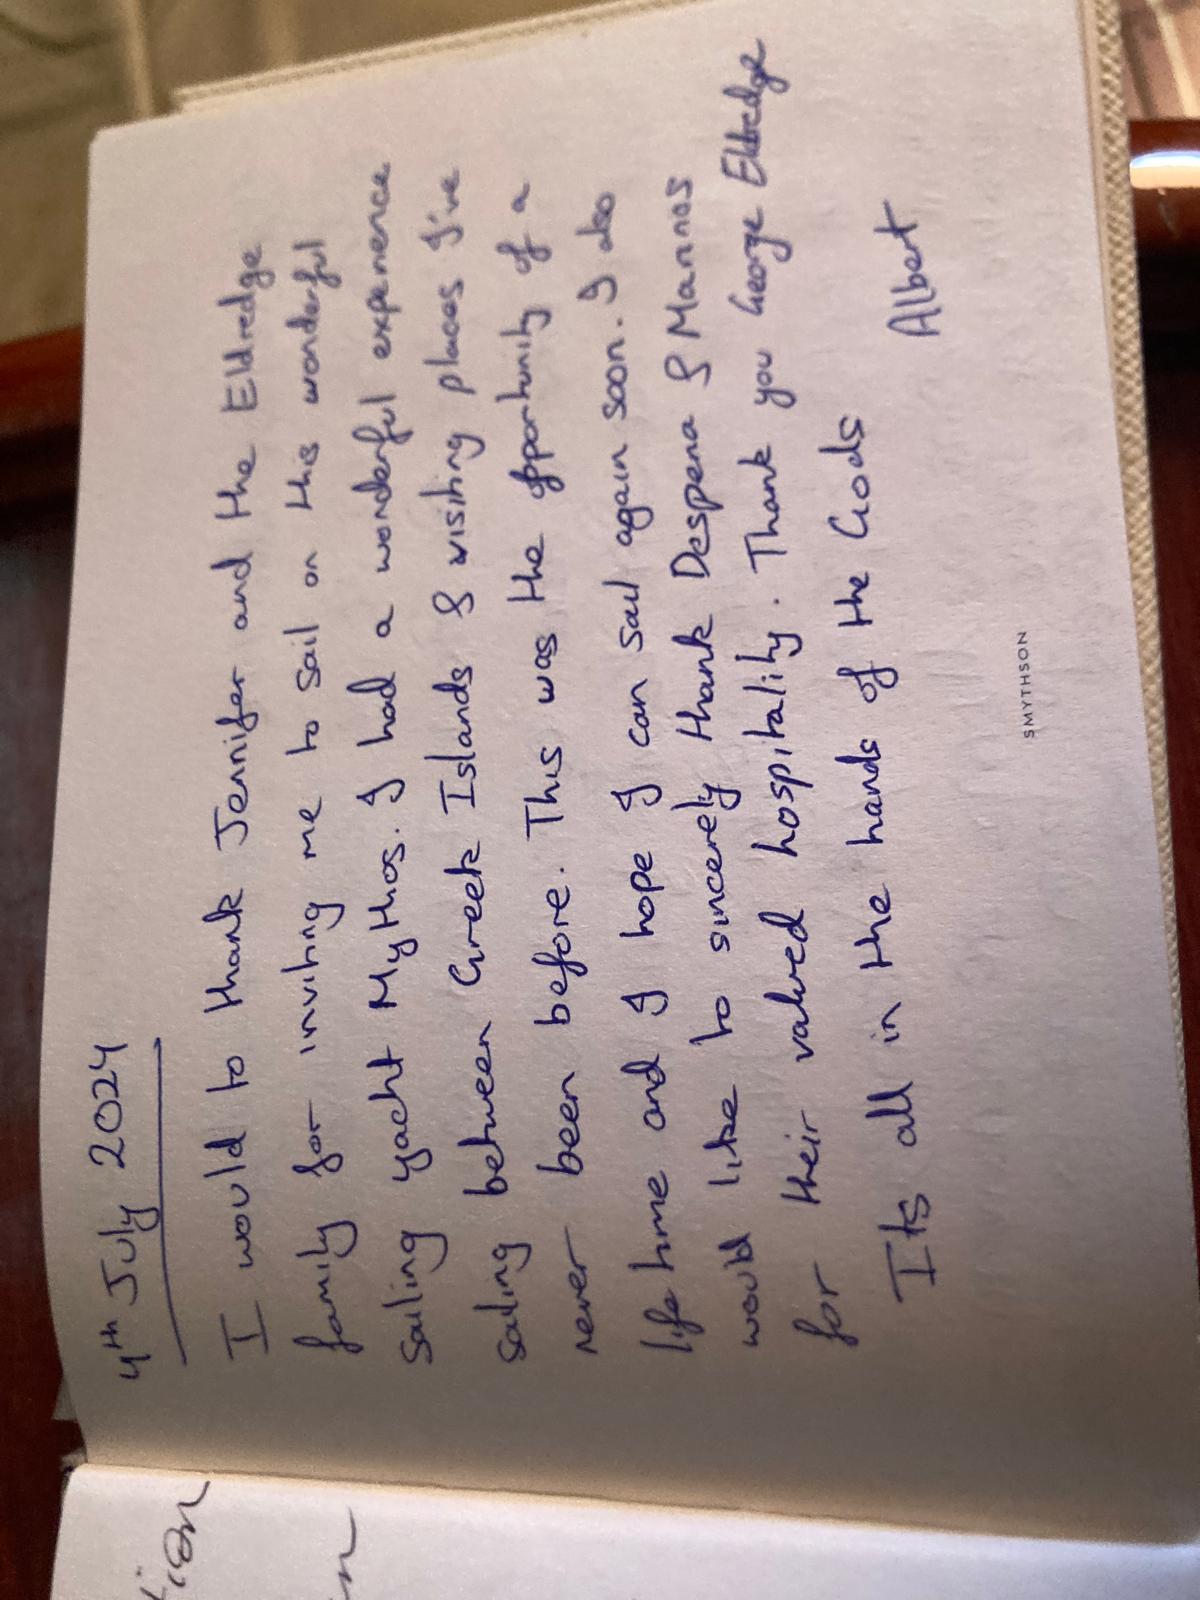 4th July 2024
I would to thank Jennifer and the Eldredge
family for inviting me to sail on this wonderful
sailing yacht Mythos. I had a wonderful experience
sailing between Greek Islands & visiting places I've
never been before. This was the opportunity of a
life time and I hope I can sail again soon. I also
would like to sincerely thank Despena & Mannos
for their valued hospitality. Thank you George Eldredge
Its all in the hands of the Gods
Albert
SMYTHSON